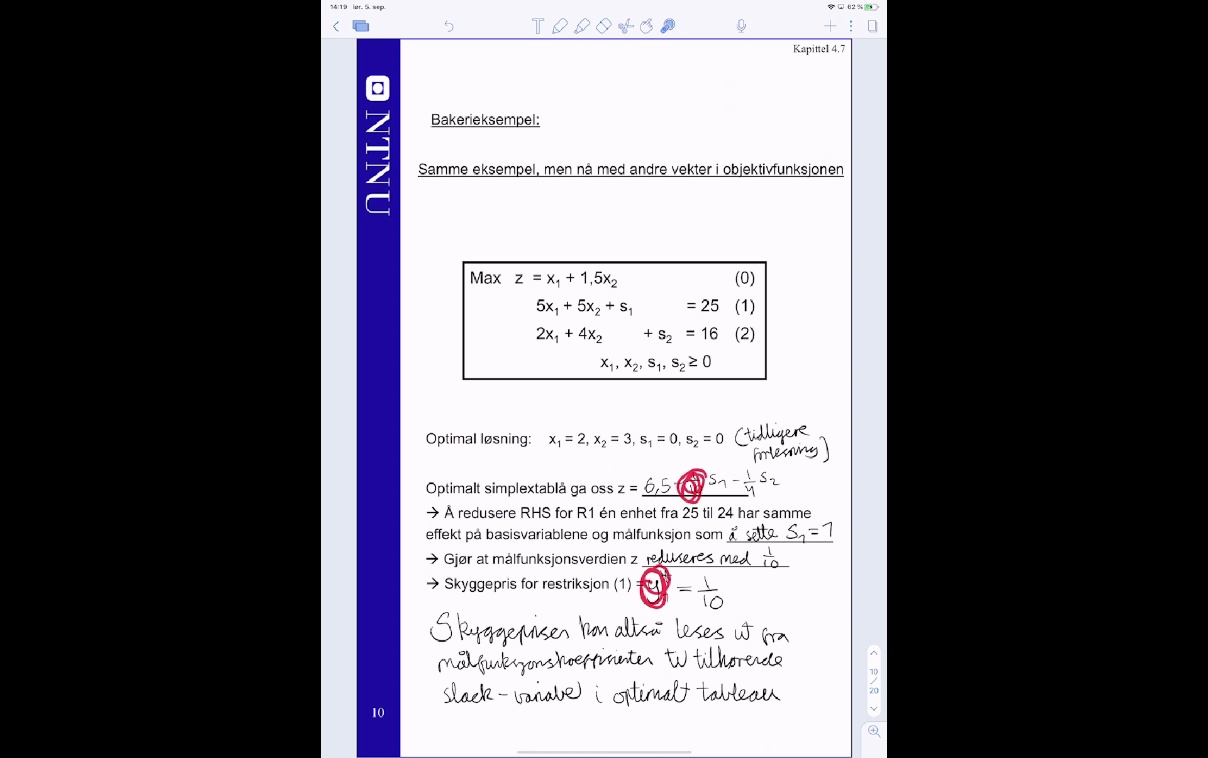 14:19 lør. 5. sep.
62 %
T
Kapittel 4.7
NTNU
Bakerieksempel:
Samme eksempel, men nå med andre vekter i objektivfunksjonen
Max z = x₁ + 1,5x₂ (0)
5x₁ + 5x₂ + s₁ = 25 (1)
2x₁ + 4x₂ + s₂ = 16 (2)
x₁, x₂, s₁, s₂ ≥ 0
Optimal løsning: x₁ = 2, x₂ = 3, s₁ = 0, s₂ = 0 (tidligere
forlesning)
Optimalt simplextablå ga oss z = 6,5 - s₁ - 1/4 s₂
→ Å redusere RHS for R1 én enhet fra 25 til 24 har samme
effekt på basisvariablene og målfunksjon som å sette S₁ = 1
→ Gjør at målfunksjonsverdien z reduseres med 1/10
→ Skyggepris for restriksjon (1) = = 1/10
Skyggepriser kan altså leses ut fra
målfunksjonskoeffisienten til tilhørende
slack-variabel i optimalt tableau
10
10
/
20